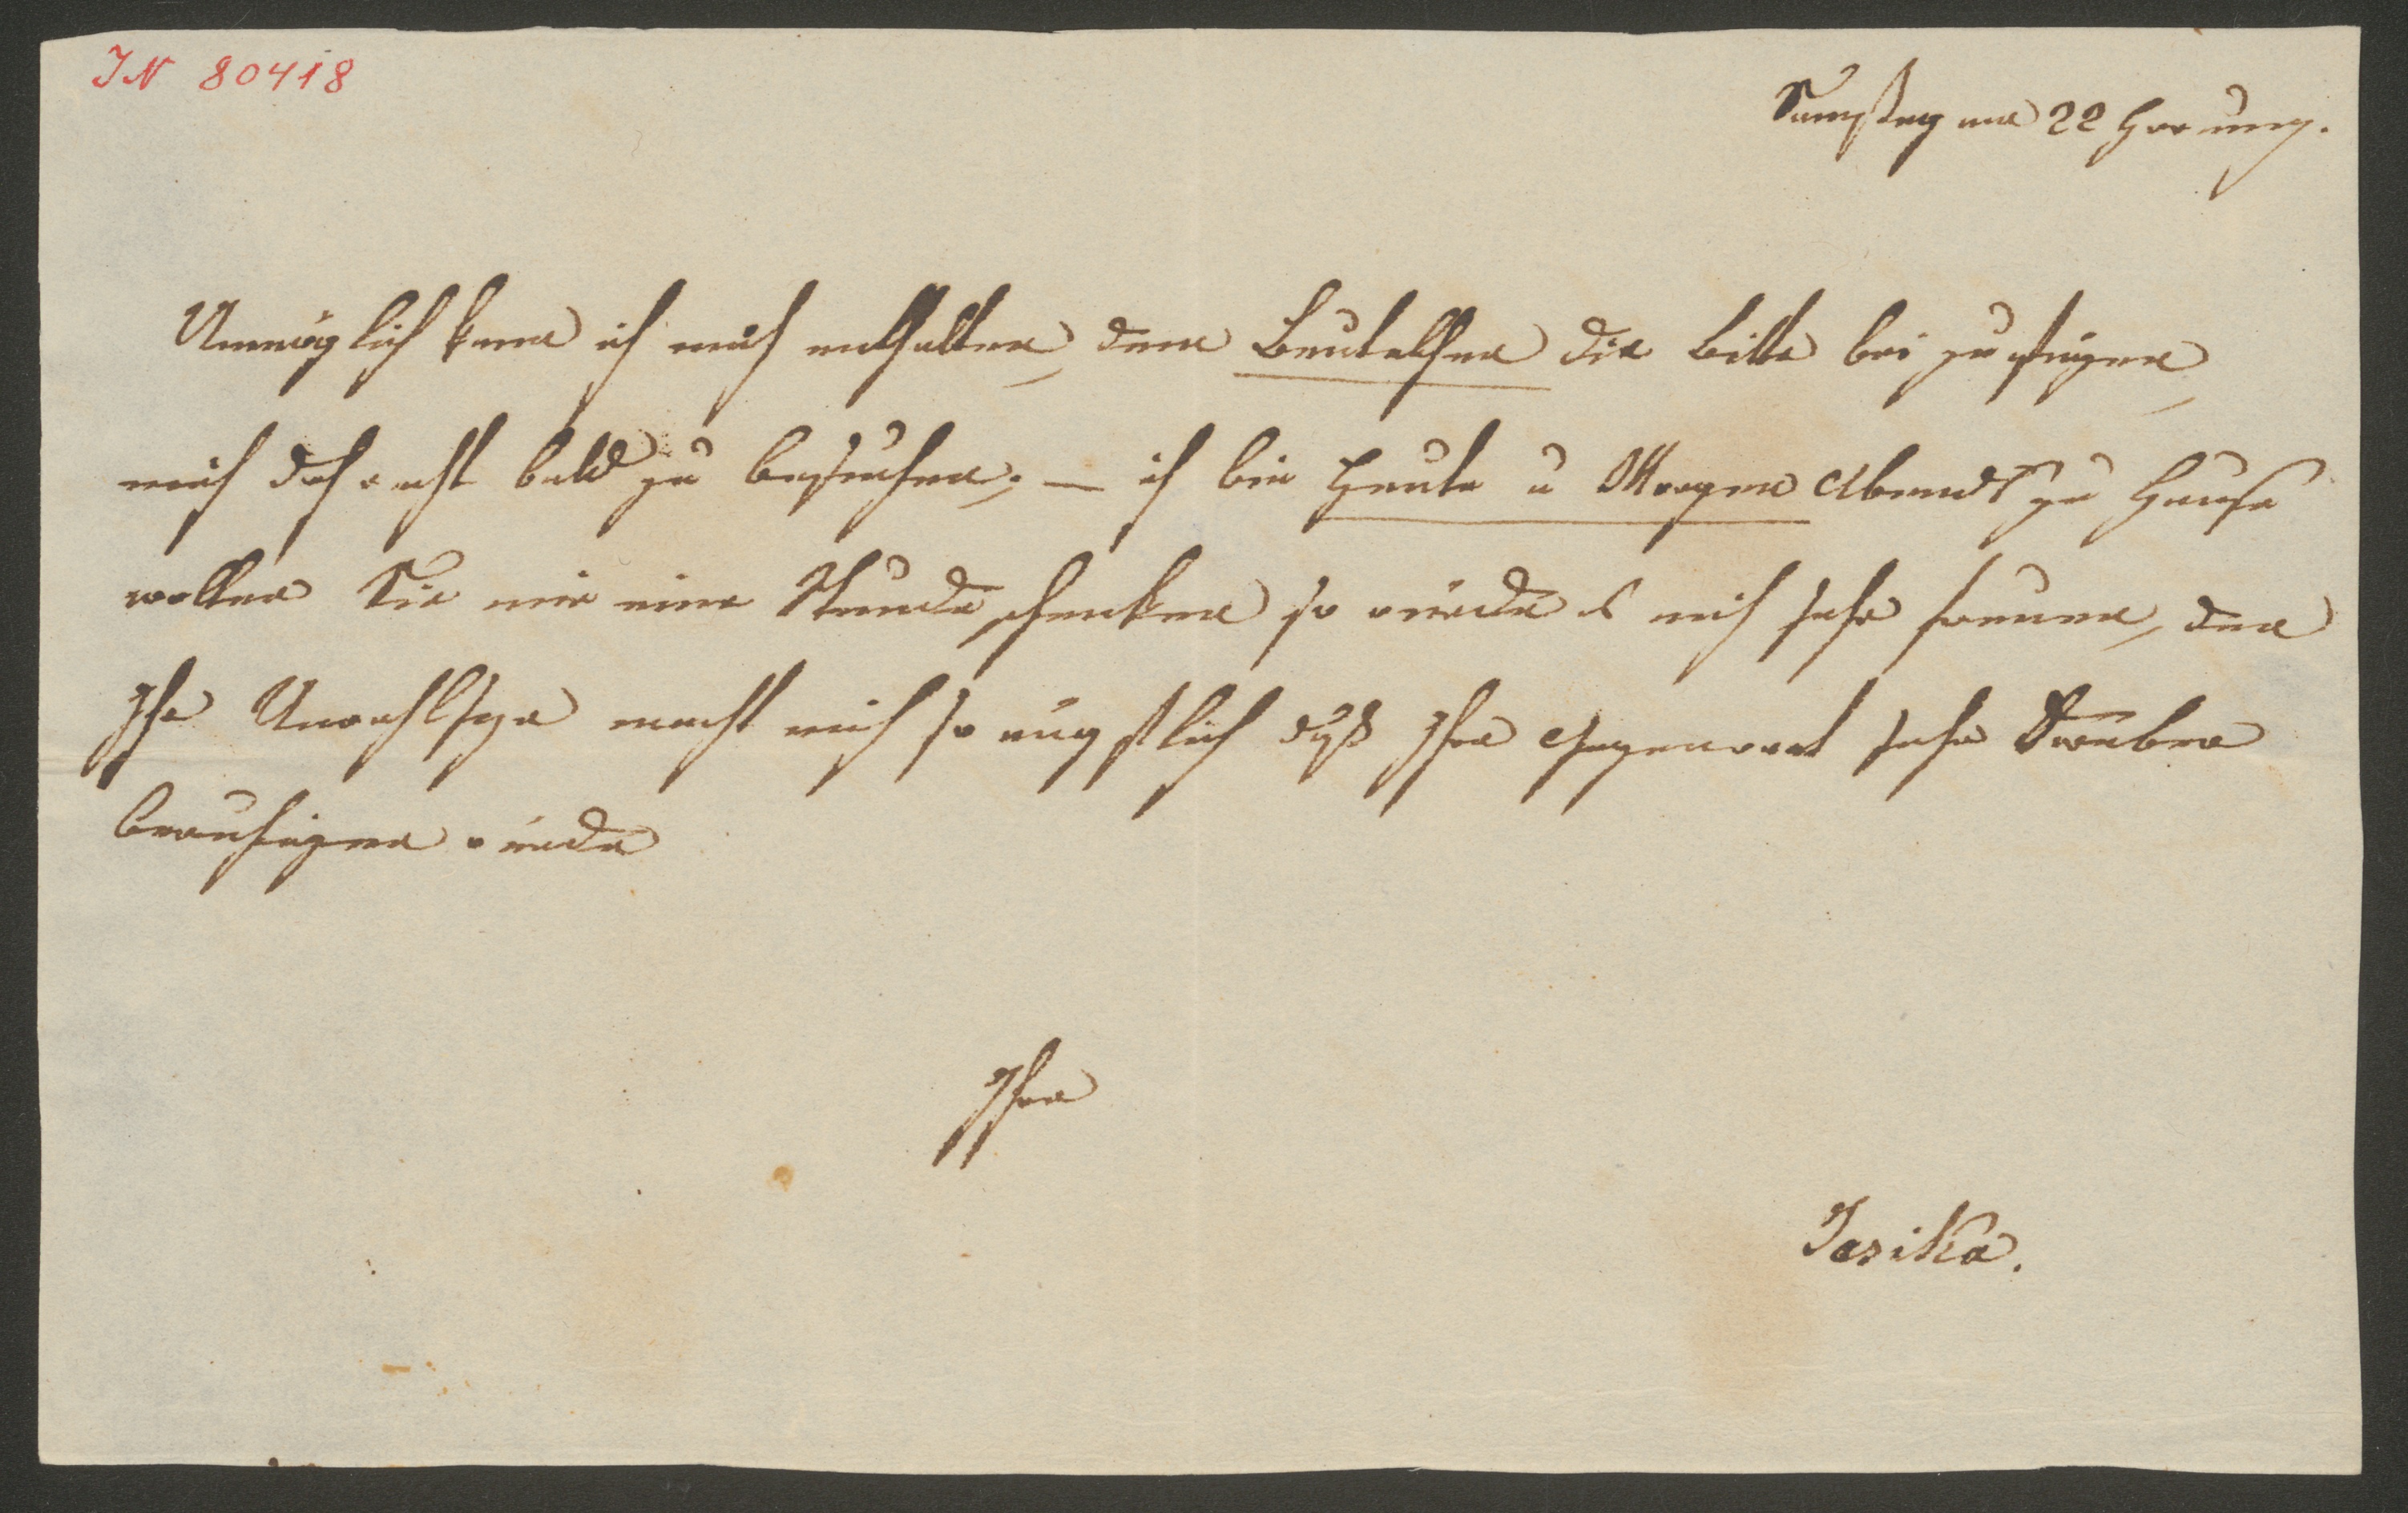 IN 80418
Samstag am 22 Hornung.
Unmöglich kann ich mich enthalten, dem Beutelchen die Bitte bei zu fügen,
mich doch recht bald zu besuchen; — ich bin Heute u Morgen Abends zu Hause
wollen Sie mir eine Stunde schenken so würde es mich sehr freuen, den
Ihr Unwohlseyn macht mich so ängstlich daß Ihre Gegenwart sehr
beruhigen würde
Ihre
Josika.